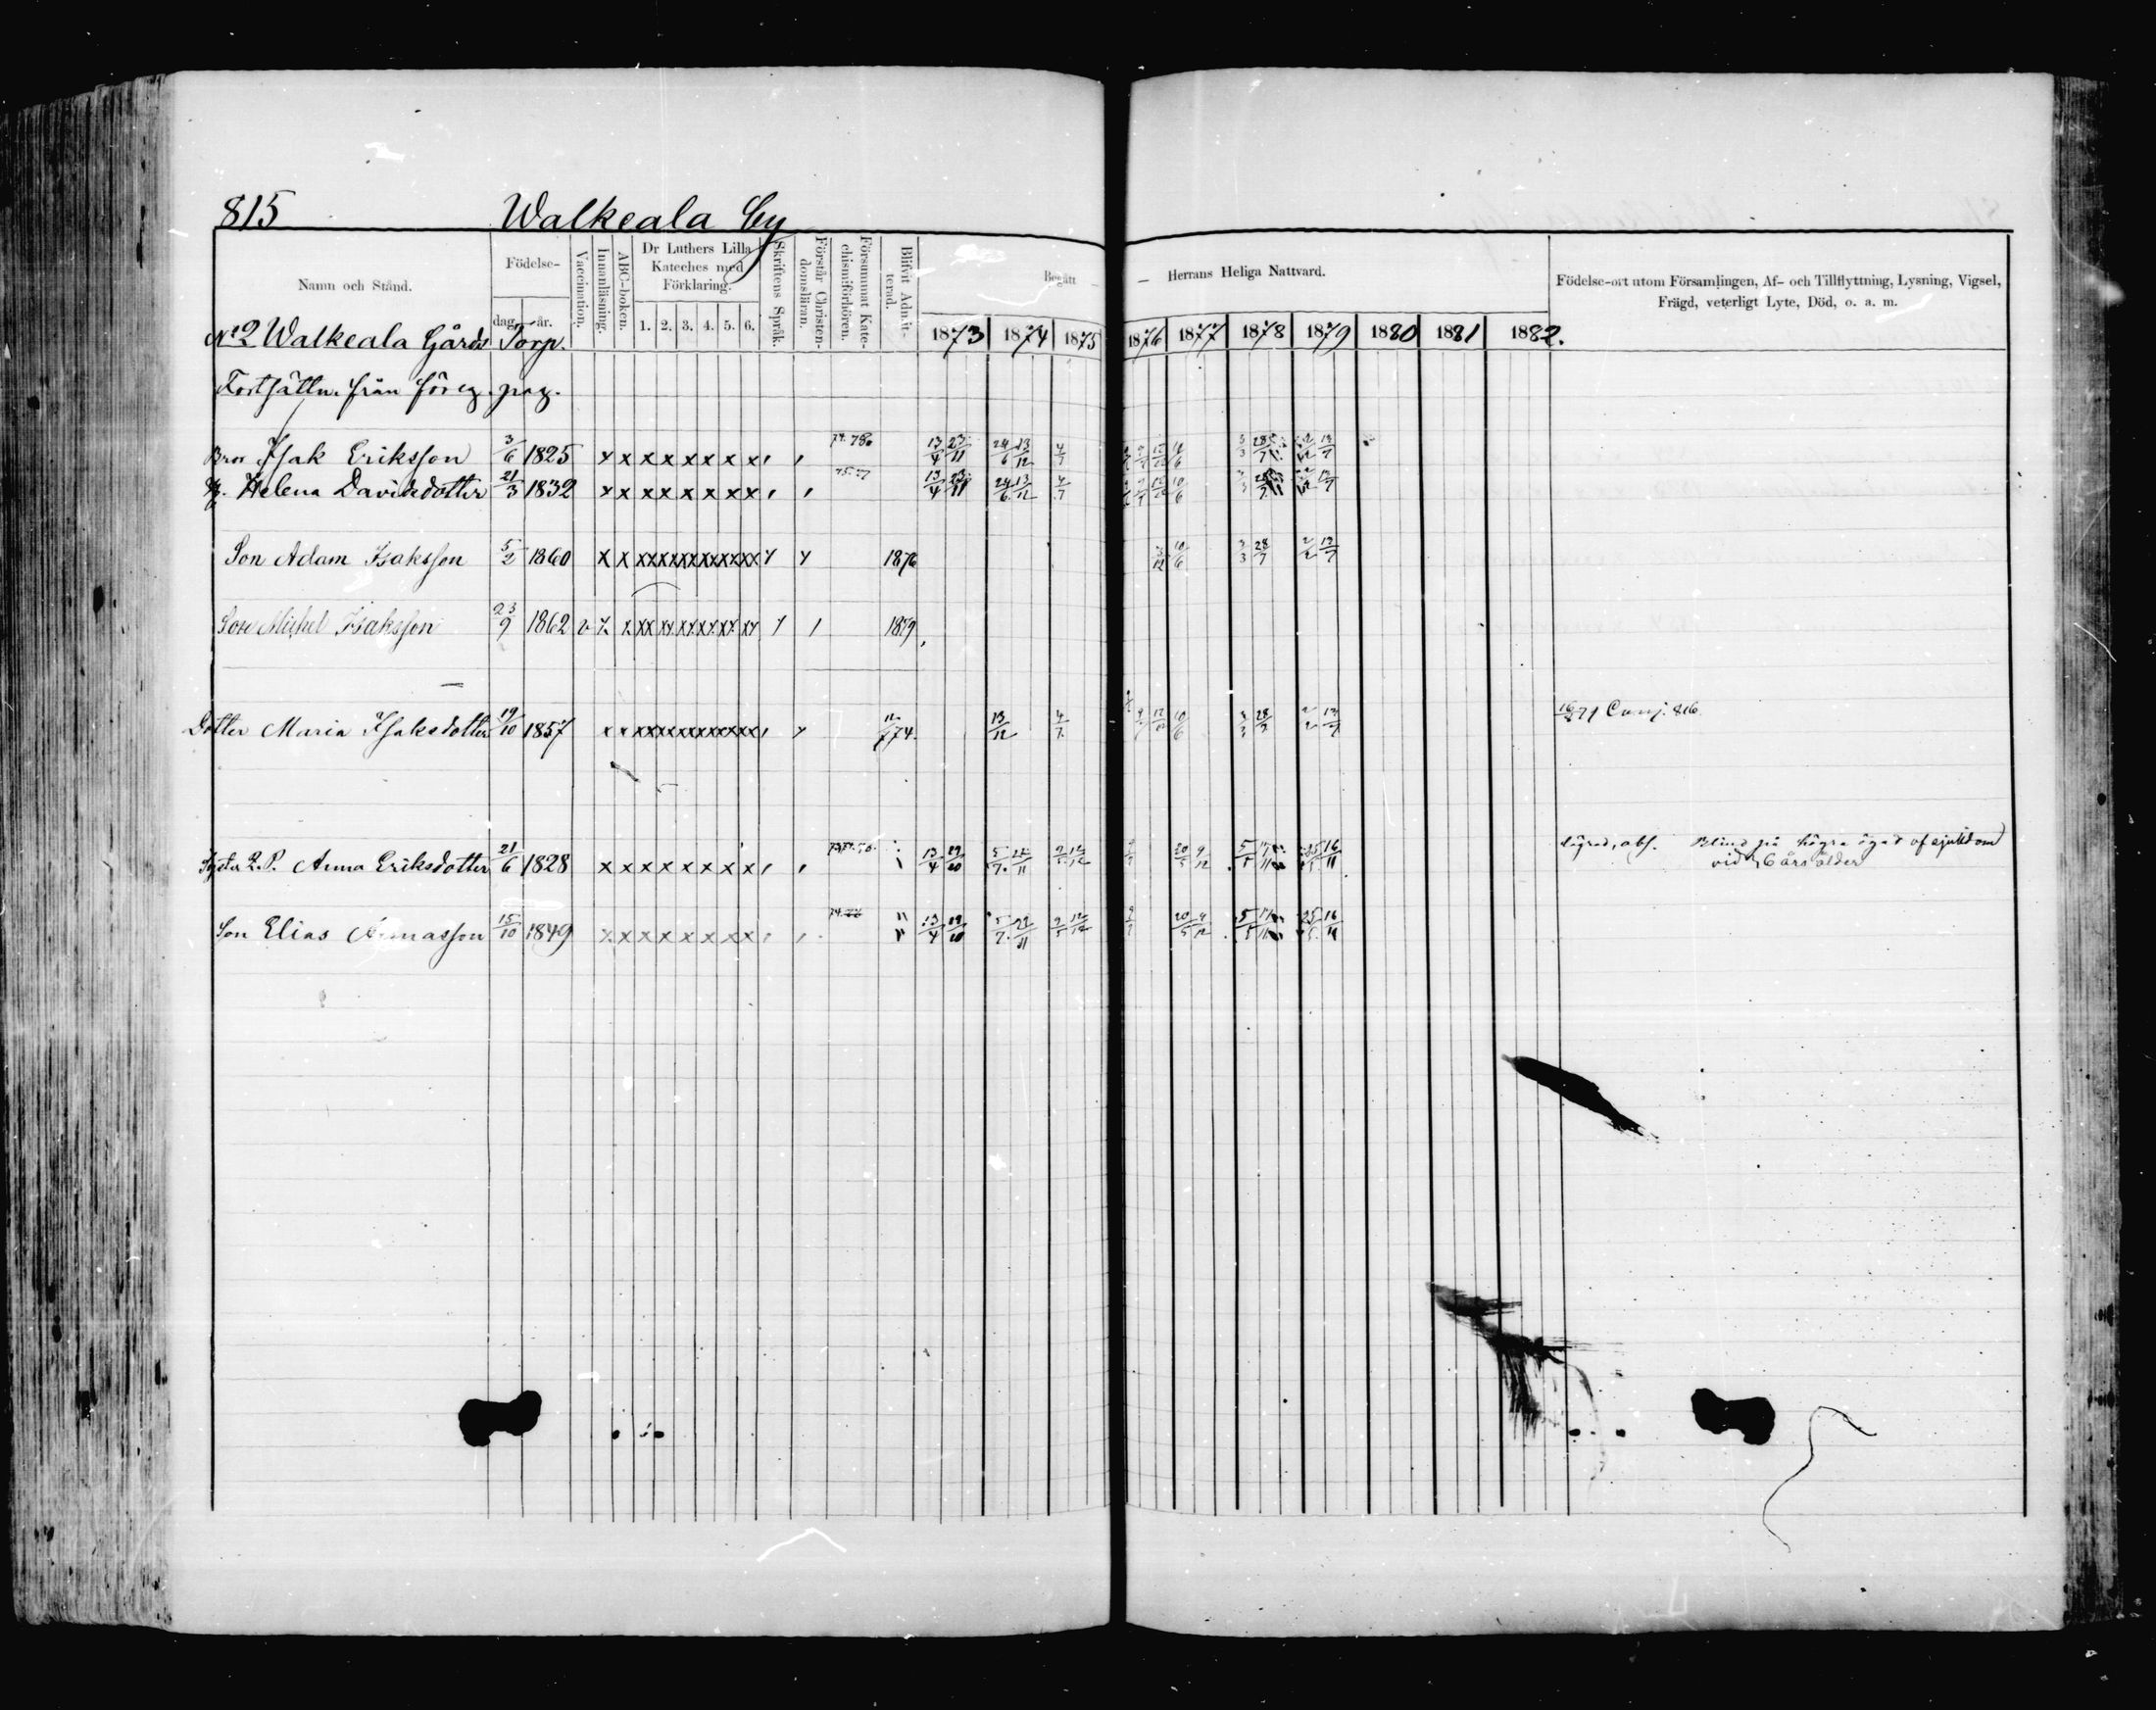 815 Walkeala by
Namn och Stånd. Födelse- dag. år. Vaccination. Innanläsning. ABC-boken. Dr Luthers Lilla Kateches med Förklaring. 1. 2. 3. 4. 5. 6. Skriftens Språk. Förstår Christendomsläran. Försummat Katechismiförhören. Blifvit Admitterad. Begått — — Herrans Heliga Nattvard. 1873 1874 1875 1876 1877 1878 1879 1880 1881 1882. Födelse-ort utom Församlingen, Af- och Tillflyttning, Lysning, Vigsel, Frägd, veterligt Lyte, Död, o. a. m.
No 2 Walkeala Gårds Torp.
Fortsättn. från föreg. pag.
Bror Isak Eriksson 3/6 1825 x x x x x x x x 13/4 23/11 24/6 13/12 4/7
Helena Davidsdotter 21/3 1832 x x x x x x x x 13/4 23/11 24/6 13/12 4/7
Son Adam Isaksson 5/2 1860 x x xx xx xx xx xx xx 1876 10/6 3/3 28/7 2/2 13/7
Son Michel Isaksson 23/9 1862 v x x xx xx xx xx xx xx 1879
Dotter Maria Isaksdotter 19/10 1857 x x xx xx xx xx xx xx 13/12 4/7 10/6 3/3 28/7 2/2 13/7 Conj. 816
Syster Anna Eriksdotter 21/6 1828 x x x x x x x x 13/4 29/10 5/7 22/11 20/5 9/12 25/5 16/11 Blind på högra ögat af sjukdom
vid 6 års ålder
Son Elias Annasson 15/10 1849 x x x x x x x x 13/4 29/10 5/7 22/11 20/5 9/12 25/5 16/11